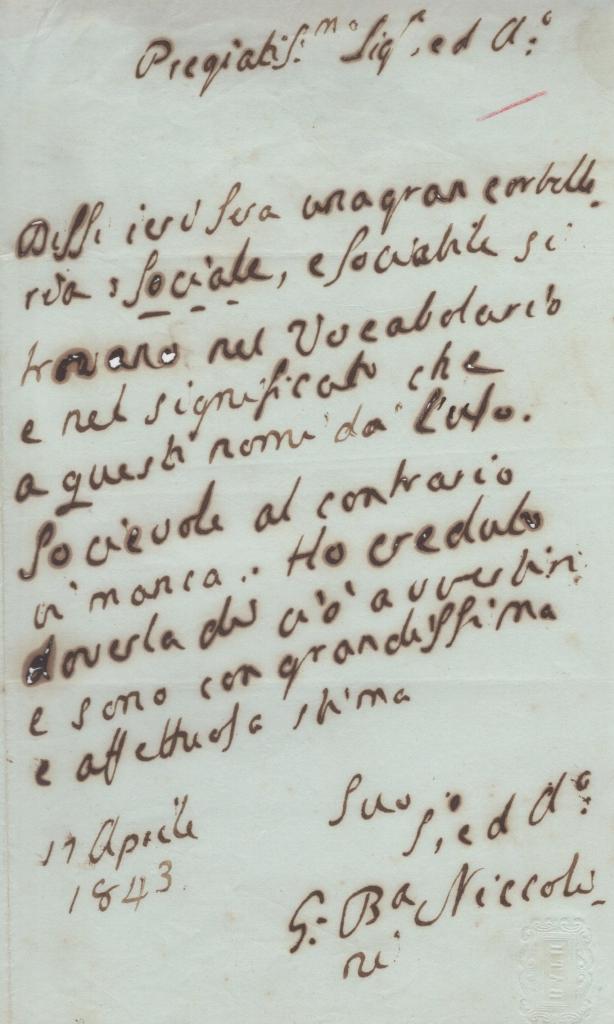 Pregiatis.mo Sig.r, ed A.o
Dissi ieri sera una gran corbelle
ria: sociale, e sociabile si
trovano nel Vocabolario
e nel significato che
a questi nomi da l'uso.
Socievole al contrario
vi manca.. Ho creduto
doverla di ciò avvertire
e sono con grandissima
e affettuosa stima
Suo
S.o, ed A.o
17 Aprile
1843
G. Ba Niccoli
ni